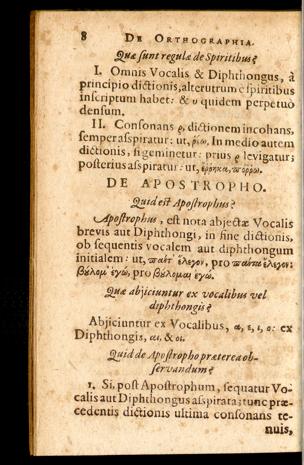 8 DE ORTHOGRAPHIA.
Quæ sunt regulæ de Spiritibus?
I. Omnis Vocalis & Diphthongus, à
principio dictionis, alterutrum e spiritibus
inscriptum habet: & υ quidem perpetuò
densum.
II. Consonans ρ, dictionem incohans,
semper aspiratur: ut, ῥέω. In medio autem
dictionis, si geminetur: prius ρ levigatur;
posterius aspiratur: ut, πόῤῥω.
DE APOSTROPHO.
Quid est Apostrophus?
Apostrophus, est nota abjectæ Vocalis
brevis aut Diphthongi, in fine dictionis,
ob sequentis vocalem aut diphthongum
initialem: ut, παντ' ἔλεγον, pro παντα ἔλεγον:
βούλομ' ἐγὼ, pro βούλομαι ἐγώ.
Quæ abjiciuntur ex vocalibus vel
diphthongis?
Abjiciuntur ex Vocalibus, α, ε, ι, ο: ex
Diphthongis, αι, & οι.
Quid de Apostropho præterea ob-
servandum?
1. Si, post Apostrophum, sequatur Vo-
calis aut Diphthongus aspirata; tunc præ-
cedentis dictionis ultima consonans te-
nuis,